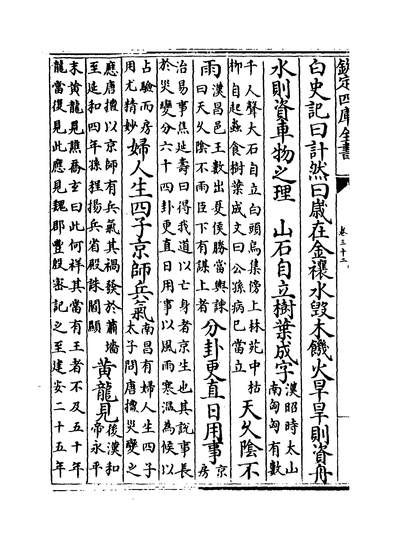 欽定四庫全書 卷三十二
白史記曰計然曰歲在金穰水毀木饑火旱旱則資舟
水則資車物之理 山石自立樹葉成字 漢昭時太山
南匈匈有數
千人聲大石自立白頭烏集傍上林苑中枯
栁自起蟲食樹葉成文曰公孫病已當立 天久陰不
雨 漢昌邑王數出夏侯勝當輿諫
曰天久陰不雨臣下有謀上者 分卦更直日用事 京
房
治易事焦延壽曰得我道以亡身者京生也其說事長
於災變分六十四卦更直日用事以風雨寒溫為候以
占驗而房
用尤精妙 婦人生四子京師兵氣 南昌有婦人生四子
太子問唐擅災變之
應唐擅以京師有兵氣其禍發於蕭墻
至延和四年孫程揚兵省殿誅閻顯 黃龍見 後漢和
帝永平
末黃龍見焦喬玄曰此何祥其當有王者不及五十年
龍當復見此應見魏郡豐殷密記之至建安二十五年